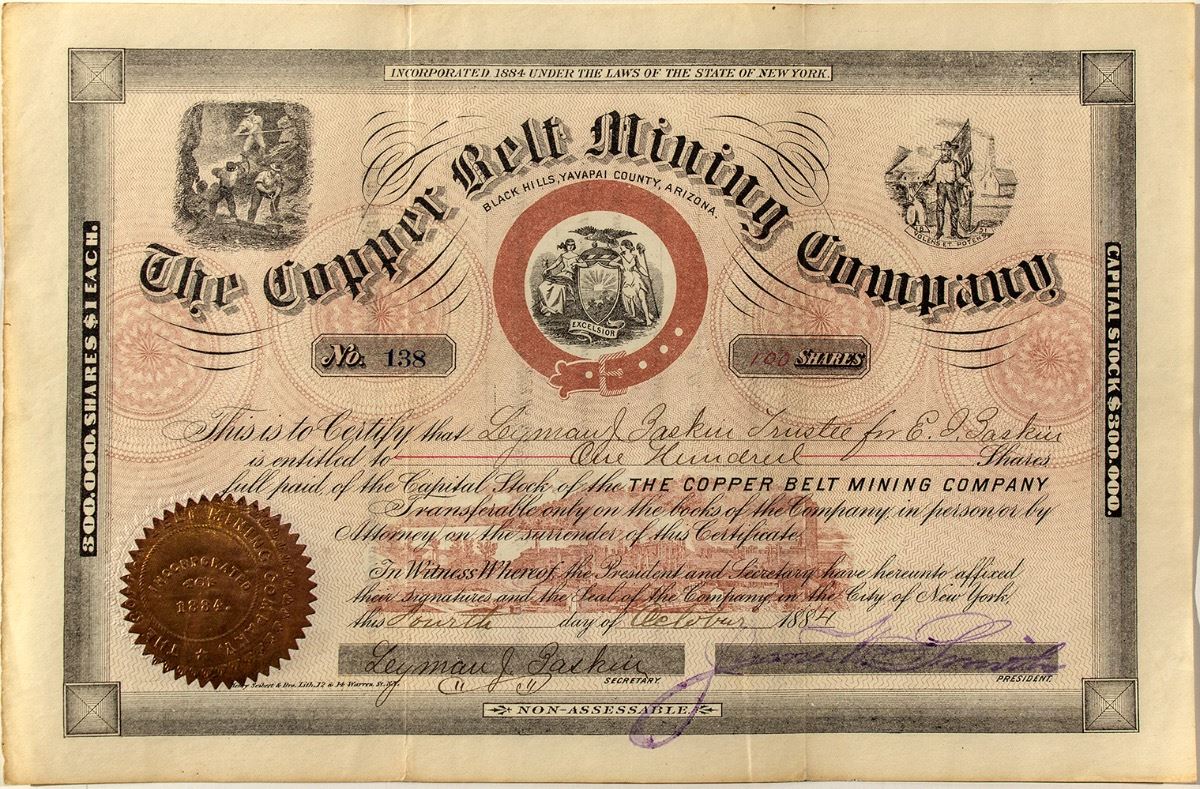 INCORPORATED 1884 UNDER THE LAWS OF THE STATE OF NEW YORK.
The Copper Belt Mining Company
BLACK HILLS, YAVAPAI COUNTY, ARIZONA.
EXCELSIOR
VOLENS ET POTENS
300.000. SHARES $1 EACH.
CAPITAL STOCK $300,000.
No. 138
100 SHARES
This is to Certify that Leyman J. Gaskin Trustee for E. J. Gaskin
is entitled to One Hundred Shares
full paid of the Capital Stock of the THE COPPER BELT MINING COMPANY
Transferable only on the books of the Company in person or by
Attorney on the surrender of this Certificate.
In Witness Whereof, the President and Secretary have hereunto affixed
their signatures and the Seal of the Company, in the City of New York,
this Fourth day of October 1884
INCORPORATED
1884.
Leyman J. Gaskin
SECRETARY.
PRESIDENT.
Henry Seibert & Bro. Lith. 12 & 14 Warren St. N.Y.
NON-ASSESSABLE.